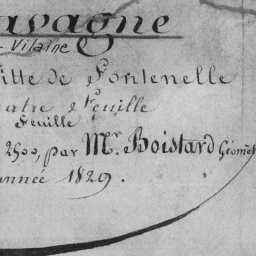 avagne
- Vilaine
itte de Fontenelle
uatre 2e feuille
feuille
2500, par Mr. Boistard Géomèt
année 1829.